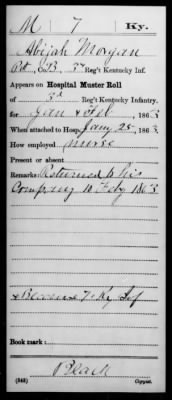 M 7 Ky.
Abijah Morgan
Pvt, Co. B, 3d Reg't Kentucky Inf.
Appears on Hospital Muster Roll
of 3d Reg't Kentucky Infantry,
for Jan & Feb, 1863
When attached to Hosp. Jany 28, 1863
How employed nurse
Present or absent
Remarks: Returned to his
Company 10 Feby 1863
* Became 7 Ky Inf
Book mark:
(543) Copyist.